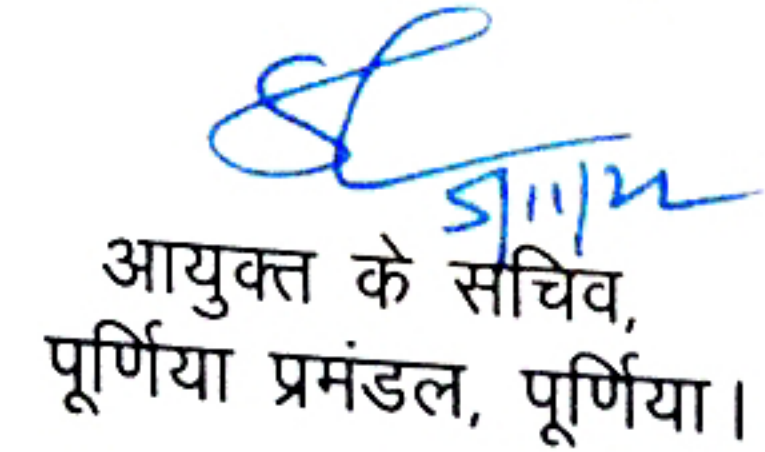 5/11/22
आयुक्त के सचिव,
पूर्णिया प्रमंडल, पूर्णिया।